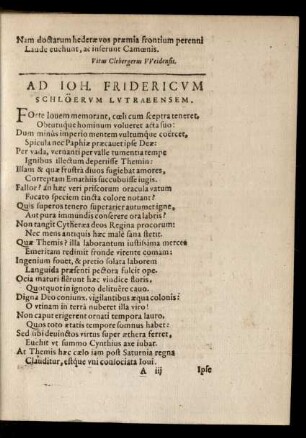 Nam doctarum hederæ vos præmia frontium perenni
Laude euehunt, ac inserunt Camœnis.
Vitus Clebergerus VVeidensis.
AD IOH. FRIDERICVM
SCHLÖERVM LVTRAEENSEM.
FOrte Iouem memorant, cœli cum sceptra teneret,
Obtunque hominum volueret acta suo:
Dum minùs imperio mentem vultumque coërcet,
Spicula nec Paphiæ præcauet ipse Deæ:
Per vada, vernanti per valle tumentia tempe
Ignibus illectum deperiisse Themin:
Illam & quæ frustrà diuos fugiebat amores,
Correptam Emathiis succubuisse iugis.
Fallor? an hæc veri priscorum oracula vatum
Fucato speciem tincta colore notant?
Quis superos tenero superatier autumet igne,
Aut pura immundis conserere ora labris?
Non tangit Cytherea deos Regina procorum:
Nec mens antiquis hæc malè sana stetit.
Quæ Themis? illa laborantum iustissima merces
Emeritans redimit fronde virente comam:
Ingenium fouet, & pretio solata laborem
Languida præsenti pectora fulcit ope.
Ocia maturi sternit hæc vindice floris,
Quotquot in ignoto delituêre cauo.
Digna Deo coniunx. vigilantibus æqua colonis?
O vtinam in terrâ nuberet illa viro!
Non caput erigerent ornati tempora lauro,
Quos toto ætatis tempore somnus habet:
Sed sibi deuinctos virtus super æthera ferret,
Euehit vt summo Cynthius axe iubar.
At Themis hæc cælo iam post Saturnia regna
Clauditur, estque vni consociata Ioui.
A iij Ipse